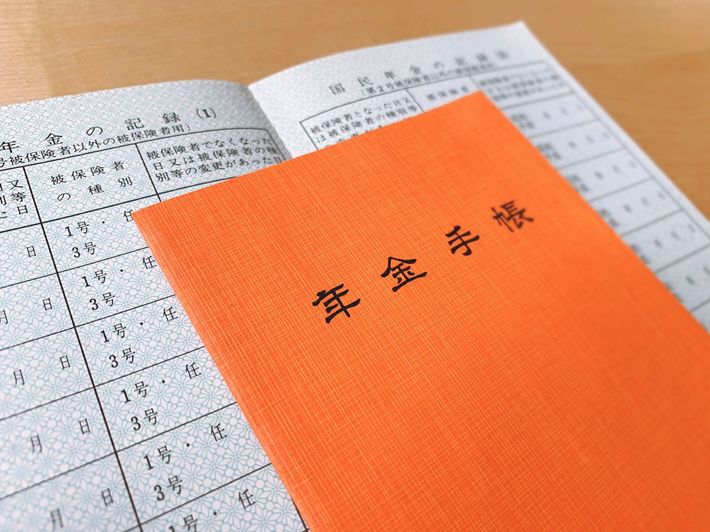 年金の記録(1)
号被保険者以外の被保険者用)
被保険者
の種別
被保険者でなくなった
日又は被保険者の種
別等の変更があった日
日 1号・任
3号
月 日 1号・任
3号
月 日 1号・任
3号
月 日 1号・任
3号
月 日 1号・任
3号
日 1号・任
国民年金の記録
(第2号被保険者以外の被保険者用)
被保険者となった日又
は被保険者の種別等
年金手帳